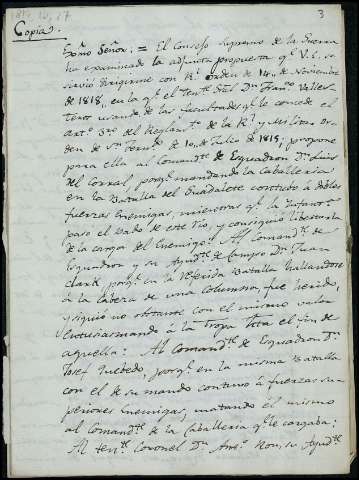 3
Copia.
Exmo Señor: = El Consejo Supremo de la Guerra
ha examinado la adjunta propuesta qe V.E. se
sirvió dirigirme con Rl orden de 14 de Noviembre
de 1818, en la qe el Tente Gral Dn Franco Valles-
teros usando de las facultades qe le concede el
artº 3º del Reglamto de la Rl y Militar Or-
den de Sn Ferndo de 10 de Julio de 1815, propone
para ella al Comandte de Esquadron Dn Luis
del Corral, porqe mandando la Caballeria
en la Batalla del Guadalete contubo á dobles
fuerzas Enemigas, mientras qe la Infanta
paso el Vado de este Rio, y consiguió libertarla
de la carga del Enemigo: Al Comandte de
Esquadron y su Ayudte de Campo Dn Juan
Clark, porqe en la referida Batalla hallandose
á la Cabeza de una Columna, fue herido,
y siguió no obstante con el mismo valor
entusiasmando á la Tropa hta el fin de
aquella: Al Comandte de Esquadron Dn
Josef Quebedo, porqe en la misma Batalla
con el de su mando contubo á fuerzas su-
periores Enemigas, matando el mismo
al Comandte de la Caballeria qe le cargaba:
Al tente Coronel Dn Anto su Ayudte